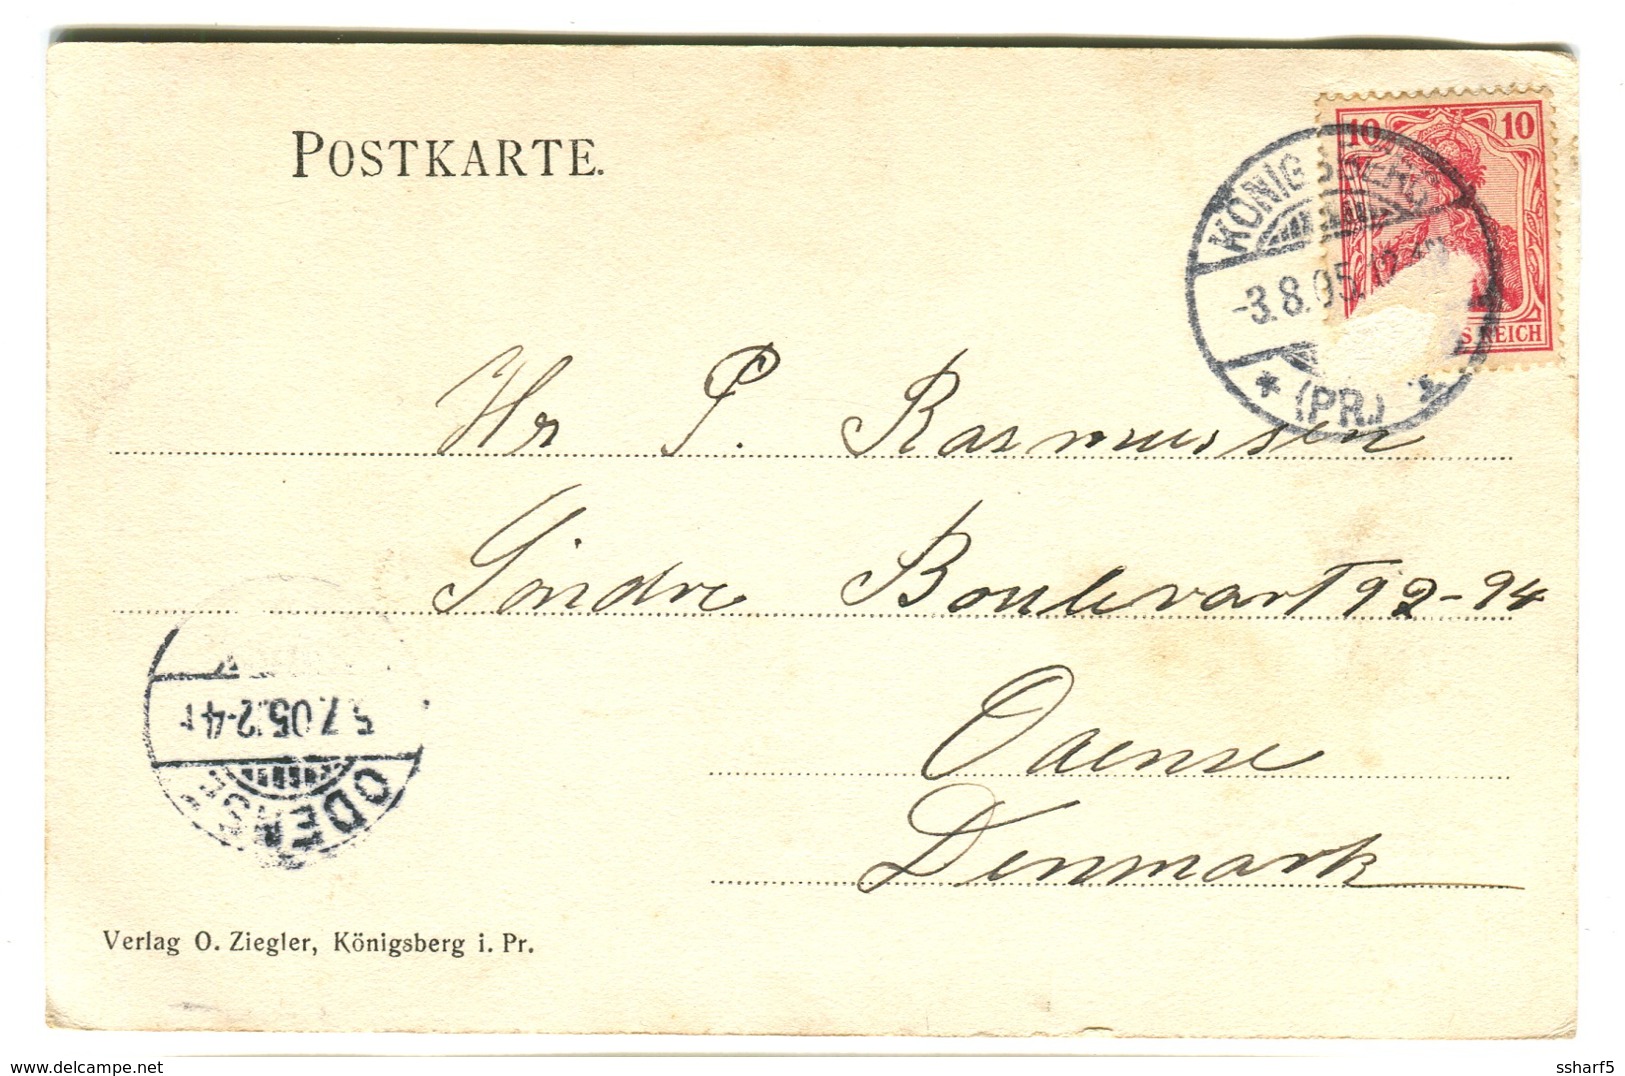 POSTKARTE.
10 10
KÖNIGSBERG
-3.8.05.
* (PR.) *
S REICH
Hr P. Rasmussen
Söndre Boulevart 92-94
Odense
Denmark
5.7.05. 2-4
ODENSE
Verlag O. Ziegler, Königsberg i. Pr.
delcampe.net
ssharf5